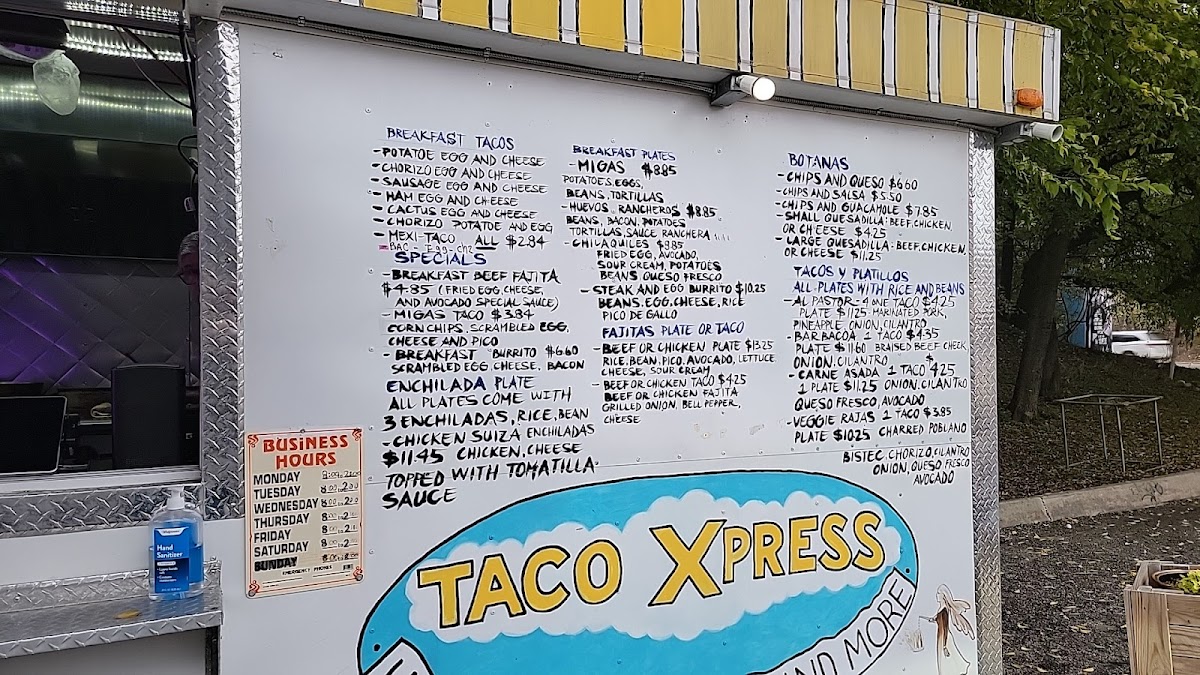 BREAKFAST TACOS
- POTATOE EGG AND CHEESE
- CHORIZO EGG AND CHEESE
- SAUSAGE EGG AND CHEESE
- HAM EGG AND CHEESE
- CACTUS EGG AND CHEESE
- CHORIZO POTATOE AND EGG
- MEXI-TACO ALL $2.84
SPECIALS
- BREAKFAST BEEF FAJITA
$4.85 (FRIED EGG, CHEESE,
AND AVOCADO SPECIAL SAUCE)
- MIGAS TACO $3.84
CORN CHIPS, SCRAMBLED EGG,
CHEESE AND PICO
- BREAKFAST BURRITO $6.60
SCRAMBLED EGG, CHEESE, BACON
ENCHILADA PLATE
ALL PLATES COME WITH
3 ENCHILADAS, RICE, BEAN
- CHICKEN SUIZA ENCHILADAS
$11.45 CHICKEN, CHEESE
TOPPED WITH TOMATILLA
SAUCE
BREAKFAST PLATES
- MIGAS $8.85
POTATOES, EGGS,
BEANS, TORTILLAS
- HUEVOS RANCHEROS $8.85
BEANS, BACON, POTATOES
TORTILLAS, SAUCE RANCHERA
- CHILAQUILES $8.85
FRIED EGG, AVOCADO,
SOUR CREAM, POTATOES
BEANS QUESO FRESCO
- STEAK AND EGG BURRITO $10.25
BEANS, EGG, CHEESE, RICE
PICO DE GALLO
FAJITAS PLATE OR TACO
- BEEF OR CHICKEN PLATE $13.25
RICE, BEAN, PICO, AVOCADO, LETTUCE
CHEESE, SOUR CREAM
- BEEF OR CHICKEN TACO $4.25
BEEF OR CHICKEN FAJITA
GRILLED ONION, BELL PEPPER,
CHEESE
BOTANAS
- CHIPS AND QUESO $6.60
- CHIPS AND SALSA $5.50
- CHIPS AND GUACAMOLE $7.85
- SMALL QUESADILLA: BEEF, CHICKEN,
OR CHEESE $4.25
- LARGE QUESADILLA: BEEF, CHICKEN,
OR CHEESE $11.25
TACOS Y PLATILLOS
ALL PLATES WITH RICE AND BEANS
- AL PASTOR - ONE TACO $4.25
PLATE $11.25 MARINATED PORK,
PINEAPPLE, ONION, CILANTRO
- BARBACOA 1 TACO $4.35
PLATE $11.60 BRAISED BEEF CHEEK
ONION, CILANTRO
- CARNE ASADA 1 TACO $4.25
1 PLATE $11.25 ONION, CILANTRO
QUESO FRESCO, AVOCADO
- VEGGIE RAJAS 1 TACO $3.85
PLATE $10.25 CHARRED POBLANO
BISTEC, CHORIZO, CILANTRO
ONION, QUESO FRESCO
AVOCADO
BUSINESS
HOURS
MONDAY
TUESDAY
WEDNESDAY
THURSDAY
FRIDAY
SATURDAY
SUNDAY
EMERGENCY PHONES
Hand
Sanitizer
TACO XPRESS
AND MORE